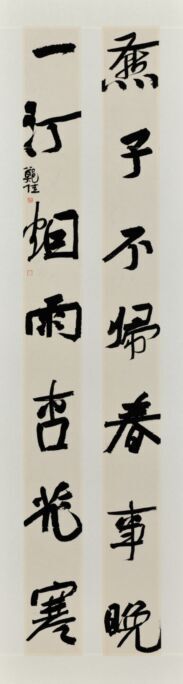 燕子不歸春事晚
一汀烟雨杏花寒